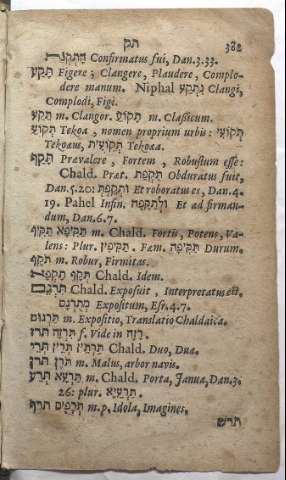 תק 382
הָתְקְנַת Confirmatus sui, Dan.3.33.
תָּקַע Figere; Clangere, Plaudere, Complo-
dere manum. Niphal נִתְקַע Clangi,
Complodi, Figi.
תֵּקַע m. Clangor. תָּקוֹעַ m. Classicum.
תְּקוֹעַ Tekoa, nomen proprium urbis: תְּקוֹעִי
Tekoaeus, תְּקוֹעִית Tekoaea.
תָּקַף Praevalere, Fortem, Robustum esse:
Chald. Praet. תִּקְפַת Obduratus fuit,
Dan.5.20: וּתְקֵפְתְּ Et roboratus es, Dan.4.
19. Pahel Infin. וּלְתַקָּפָה Et ad firman-
dum, Dan.6.7.
תַּקִּיף תַּקִּיפָא m. Chald. Fortis, Potens, Va-
lens: Plur. תַּקִּיפִין. Faem. תַּקִּיפָה Durum.
תֹּקֶף m. Robur, Firmitas.
תְּקֹף תָּקְפָא Chald. Idem.
תִּרְגֵּם Chald. Exposuit, Interpretatus est.
מְתֻרְגָּם Expositum, Esr.4.7.
תַּרְגּוּם m. Expositio, Translatio Chaldaica.
תרז תִּרְזָה f. Vide in רזה
תְּרֵי תְּרֵין תַּרְתֵּין Chald. Duo, Duae.
תרן תֹּרֶן m. Malus, arbor navis.
תְּרַע תַּרְעָא m. Chald. Porta, Janua, Dan.3.
26: plur. תָּרָעַיָּא.
תרף תְּרָפִים m.p. Idola, Imagines.
תרש